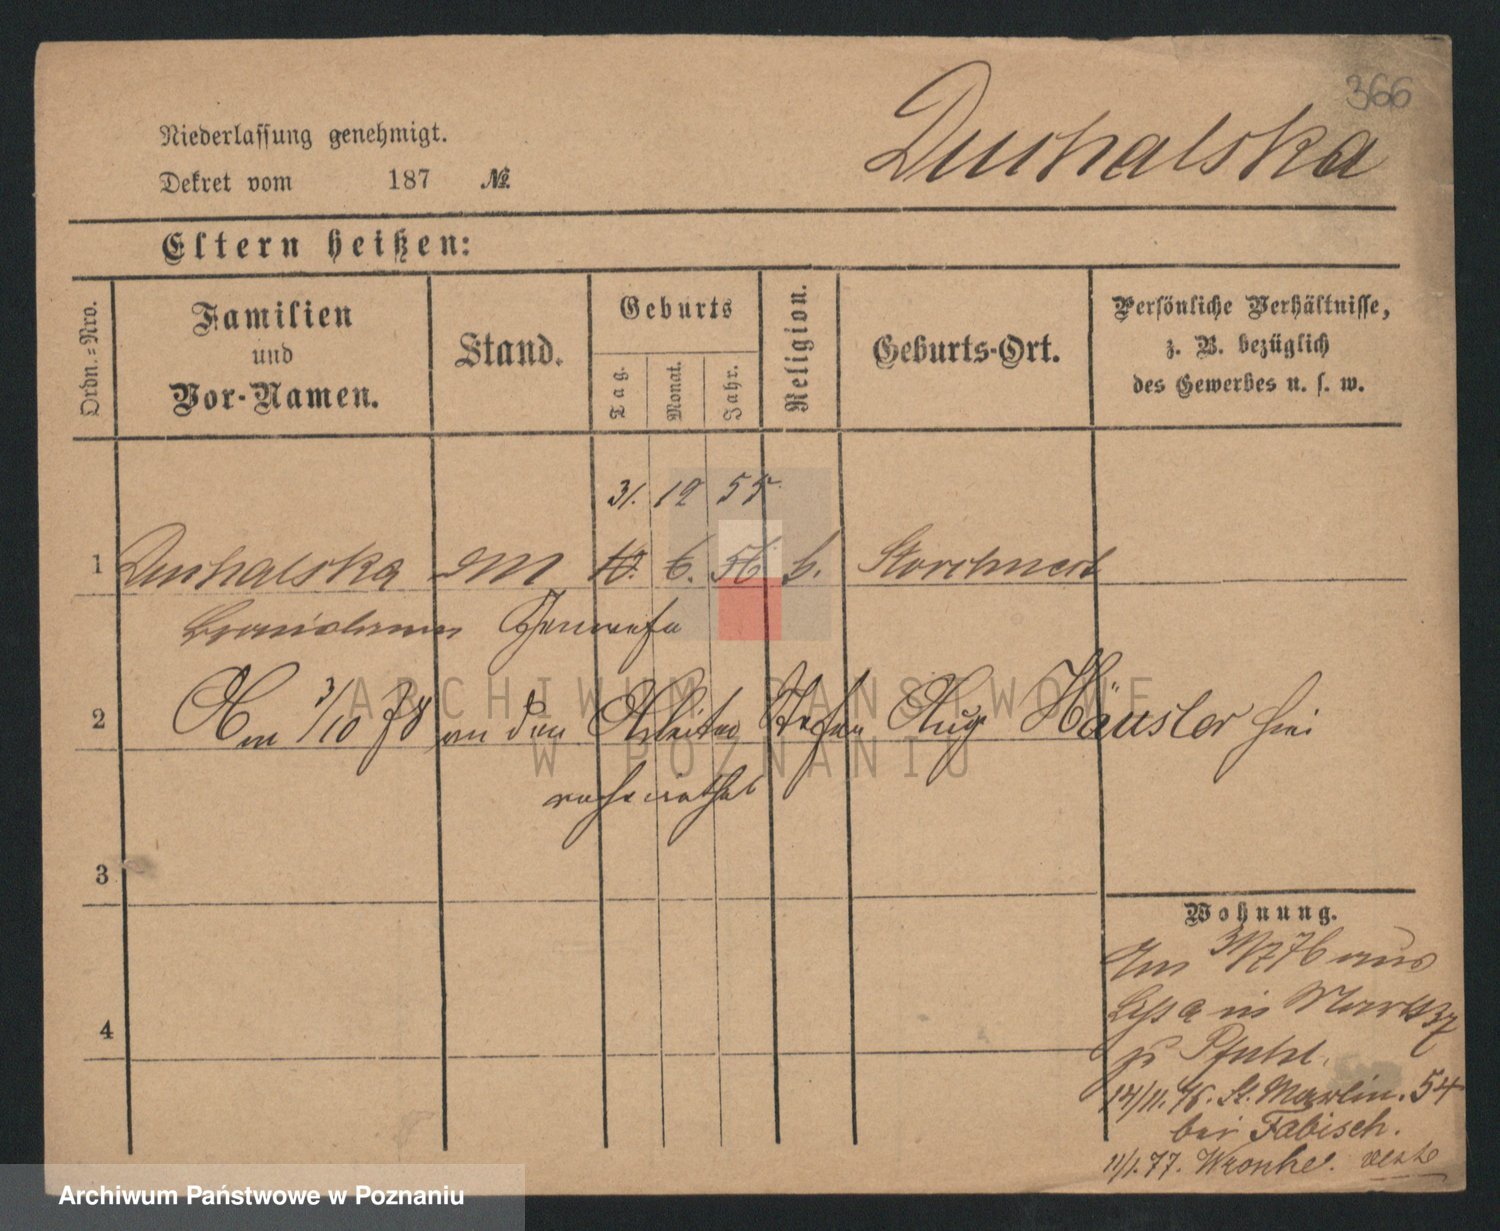 366
Duchalska
Niederlassung genehmigt.
Dekret vom 187 №
Eltern heißen:
Ordn.-Nro.
Familien und Vor-Namen.
Stand.
Geburts
Tag.
Monat.
Jahr.
Religion.
Geburts-Ort.
Persönliche Verhältnisse,
z. B. bezüglich
des Gewerbes u. s. w.
31. 12 55
1 Duchalska M 10. 6. 56 k. Storchnest
Genowefa
2 Am 3/10 78 an den Arbeiter Stefan Aug Häusler hier
verheirathet
3
Wohnung.
Am 31/7 76 aus
Lissa in Markt 37
zu Pfuhl.
4
14/11. 76. St. Martin. 54
bei Fabisch.
11/1. 77. Wronke.
ARCHIWUM PAŃSTWOWE
W POZNANIU
Archiwum Państwowe w Poznaniu